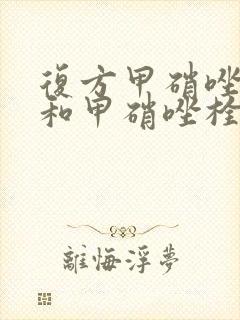 復方甲硝唑
和甲硝唑栓
離悔浮夢